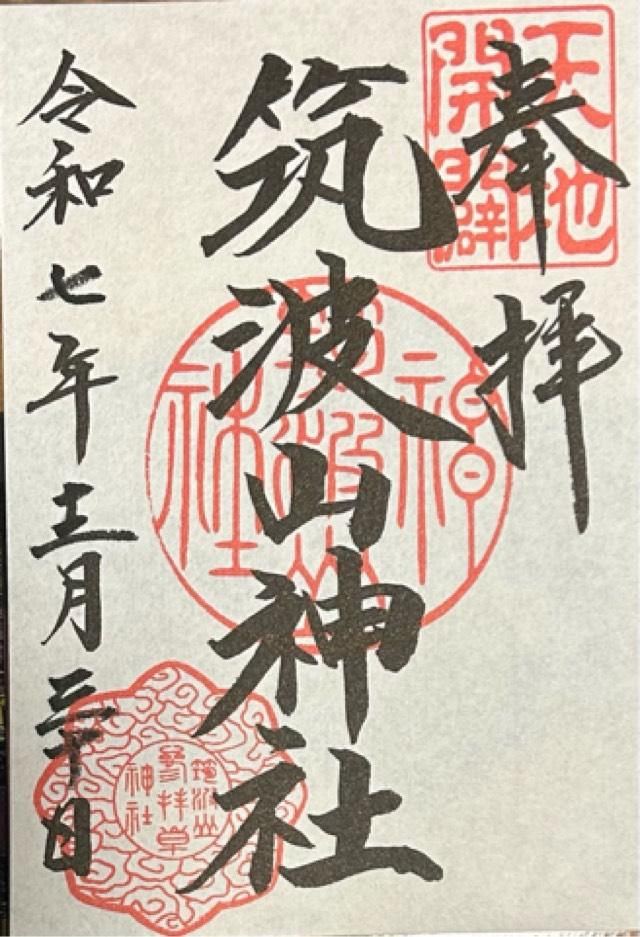 天地
開闢
奉拝
筑波山神社
令和七年十二月三十日
神
筑波山
社
筑波山
參拝章
神社